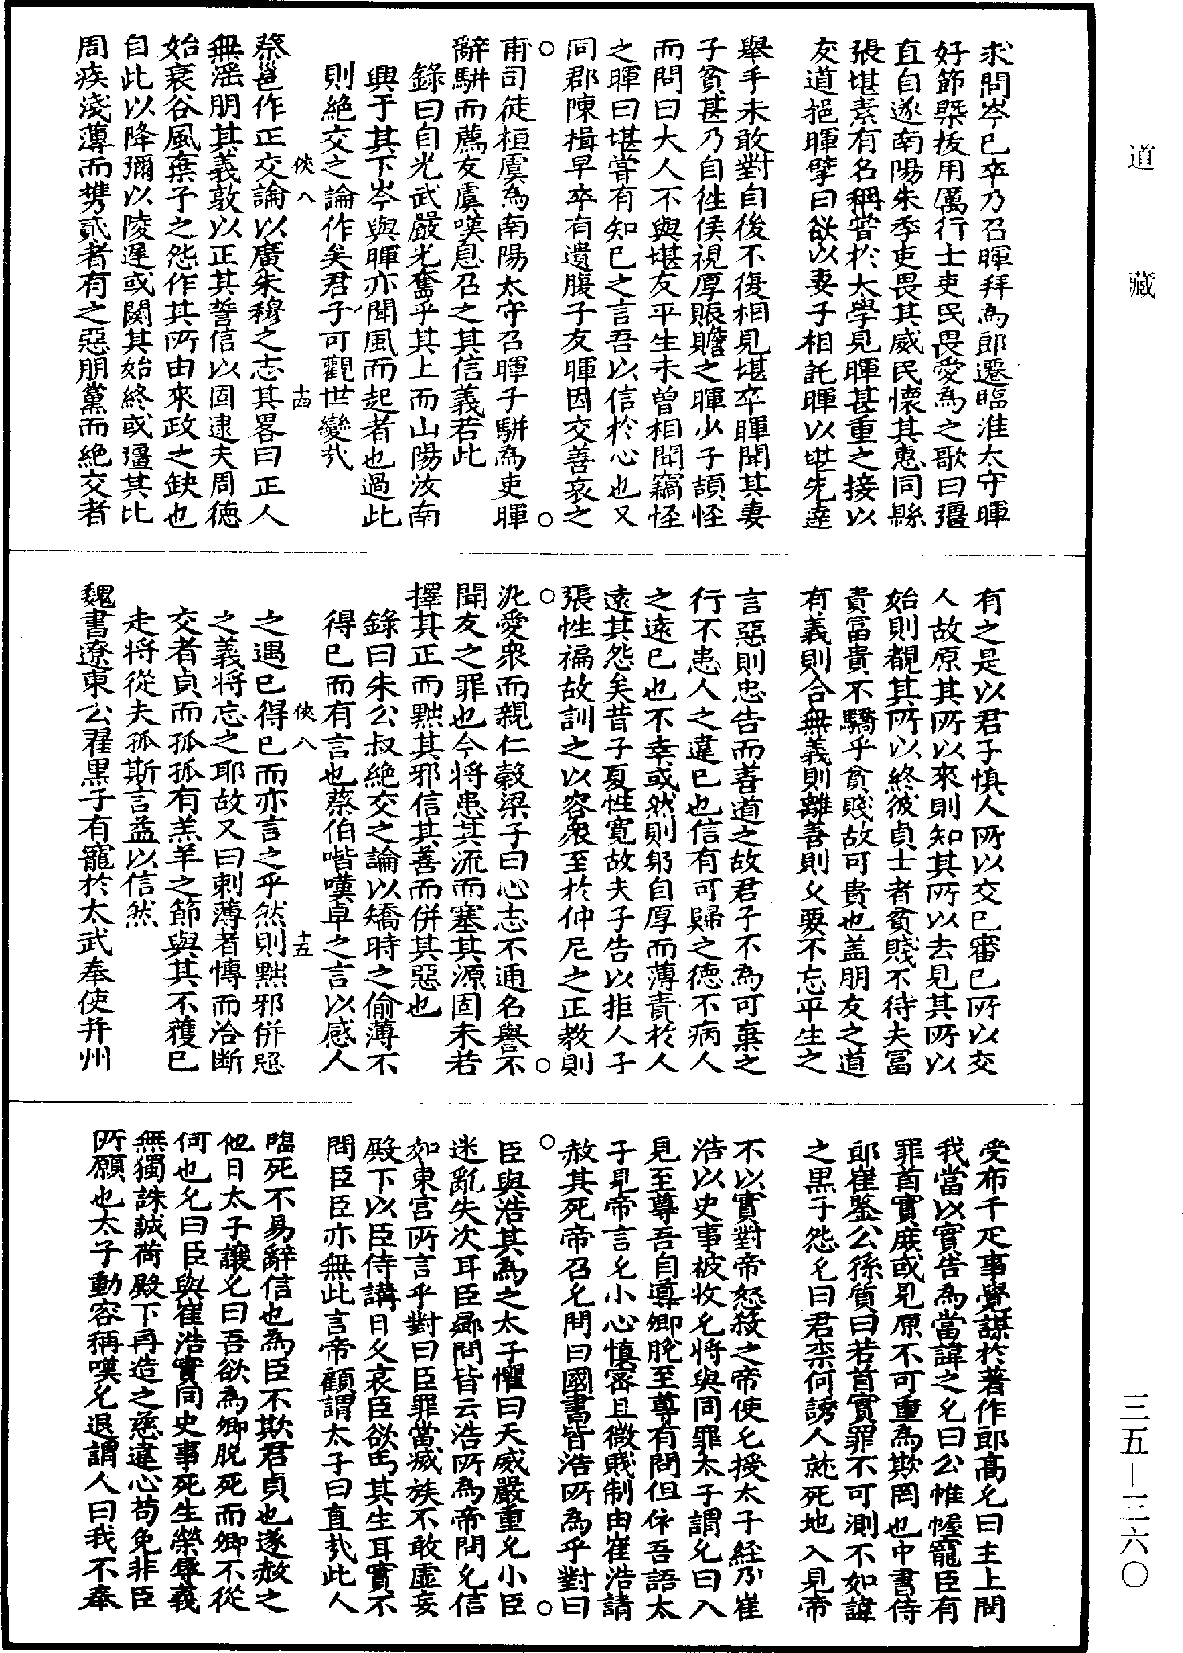 道藏
三五—二六〇
求問岑已卒乃召暉拜為郎遷臨淮太守暉
好節槩後用厲行士吏民畏愛為之歌曰彊
直自遂南陽朱季吏畏其威民懷其惠同縣
張堪素有名稱嘗於大學見暉甚重之接以
友道挹暉擘曰欲以妻子相託暉以堪先達
舉手未敢對自後不復相見堪卒暉聞其妻
子貧甚乃自徃侯視厚賬贍之暉少子頡怪
而問曰大人不與堪友平生未曾相聞竊怪
之暉曰堪嘗有知已之言吾以信於心也又
同郡陳揖早卒有遺腹子友暉因交善哀之
甫司徒桓虞為南陽太守召暉子駢為吏暉
辭駢而薦友虞嘆息召之其信義若此
錄曰自光武嚴光奮乎其上而山陽汝南
興于其下岑與暉亦聞風而起者也過此
則絕交之論作矣君子可觀世變哉
俠八
十四
蔡邕作正交論以廣朱穆之志其畧曰正人
無滛朋其義敦以正其誓信以固逮夫周德
始衰谷風棄子之怨作其所由來政之缺也
自此以降彌以陵遲或闋其始終或彊其比
周疾淺薄而携貳者有之惡朋黨而絕交者
有之是以君子慎人所以交已審已所以交
人故原其所以來則知其所以去見其所以
始則覩其所以終彼貞士者貧賤不待夫富
貴富貴不驕乎貧賤故可貴也盖朋友之道
有義則合無義則離善則久要不忘平生之
言惡則忠告而善道之故君子不為可棄之
行不患人之違已也信有可歸之德不病人
之遠已也不幸或然則躬自厚而薄責於人
遠其怨矣昔子夏性寬故夫子告以拒人子
張性褊故訓之以容衆至於仲尼之正教則
汎愛衆而親仁穀梁子曰心志不通名譽不
聞友之罪也今將患其流而塞其源固未若
擇其正而黜其邪信其善而併其惡也
錄曰朱公叔絕交之論以矯時之偷薄不
得已而有言也蔡伯喈嘆卓之言以感人
俠八
十五
之遇已得已而亦言之乎然則黜邪併惡
之義將忘之耶故又曰刺薄者慱而洽断
交者貞而孤孤有羔羊之節與其不獲已
走將從夫孤斯言益以信然
魏書遼東公翟黑子有寵於太武奉使并州
受布千疋事覺謀於著作郎高允曰主上問
我當以實告為當諱之允曰公帷幄寵臣有
罪首實庶或見原不可重為欺罔也中書侍
郎崔鑒公孫質曰若首實罪不可測不如諱
之黑子怨允曰君柰何誘人就死地入見帝
不以實對帝怒殺之帝使允授太子經乃崔
浩以史事被收允將與同罪太子謂允曰入
見至尊吾自導卿脫至尊有問但依吾語太
子見帝言允小心慎密且微賤制由崔浩請
赦其死帝召允問曰國書皆浩所為乎對曰
臣與浩其為之太子懼曰天威嚴重允小臣
迷亂失次耳臣鄉問皆云浩所為帝問允信
如東宮所言乎對曰臣罪當滅族不敢虛妄
殿下以臣侍講日久哀臣欲丐其生耳實不
問臣臣亦無此言帝顧謂太子曰直哉此人
臨死不易辭信也為臣不欺君貞也遂赦之
他日太子讓允曰吾欲為卿脫死而卿不從
何也允曰臣與崔浩實同史事死生榮辱義
無獨誅誠荷殿下再造之慈違心苟免非臣
所願也太子動容稱嘆允退謂人曰我不奉